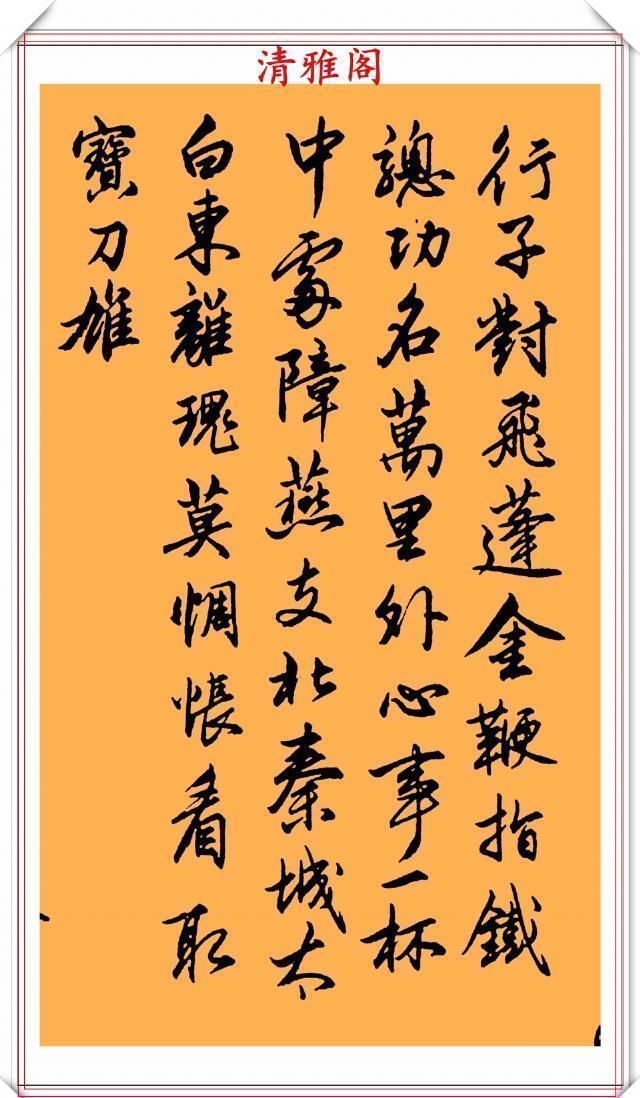 清雅阁
行子對飛蓬金鞭指鐵
驄功名萬里外心事一杯
中虜障燕支北秦城太
白東離魂莫惆悵看取
寶刀雄